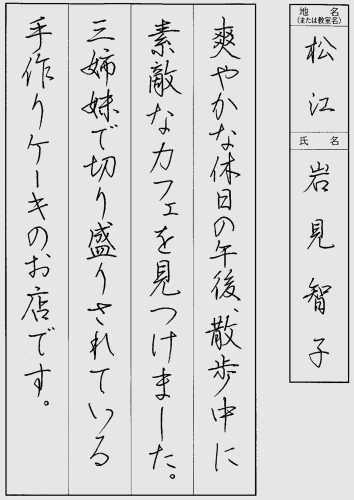 地名
(または教室名)
松江
氏名
岩見智子
爽やかな休日の午後、散歩中に
素敵なカフェを見つけました。
三姉妹で切り盛りされている
手作りケーキのお店です。